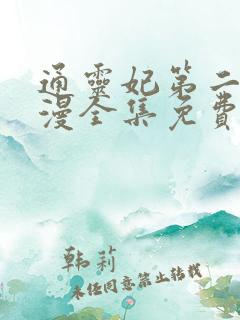 通靈妃第二
漫全集免費
韩莉
未经同意禁止转载